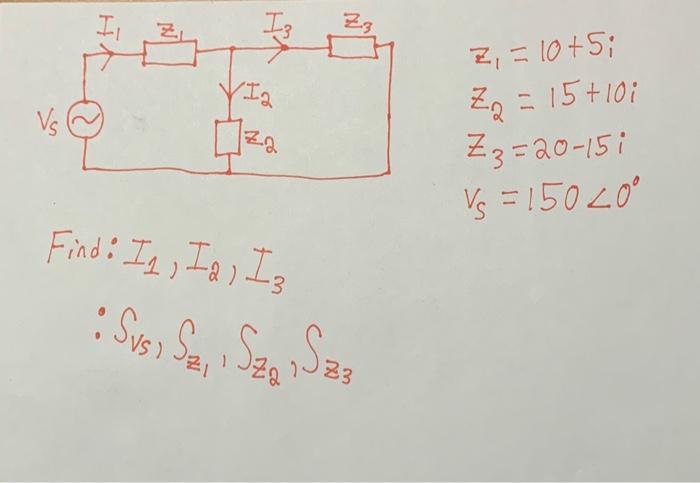 I₁ Z₁ I₃ Z₃
I₂
Vs
Z₂
Z₁ = 10+5i
Z₂ = 15+10i
Z₃ = 20-15i
Vs = 150∠0°
Find: I₁, I₂, I₃
: Svs, Sz₁, Sz₂, Sz₃